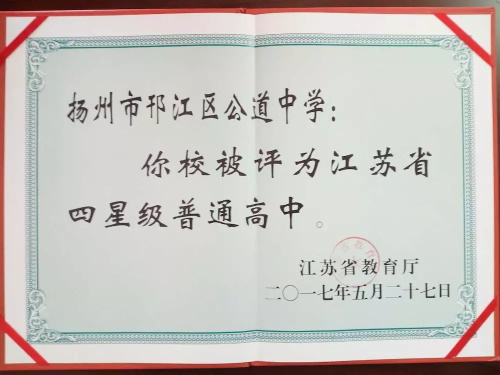 扬州市邗江区公道中学：
你校被评为江苏省
四星级普通高中。
江苏省教育厅
二〇一七年五月二十七日